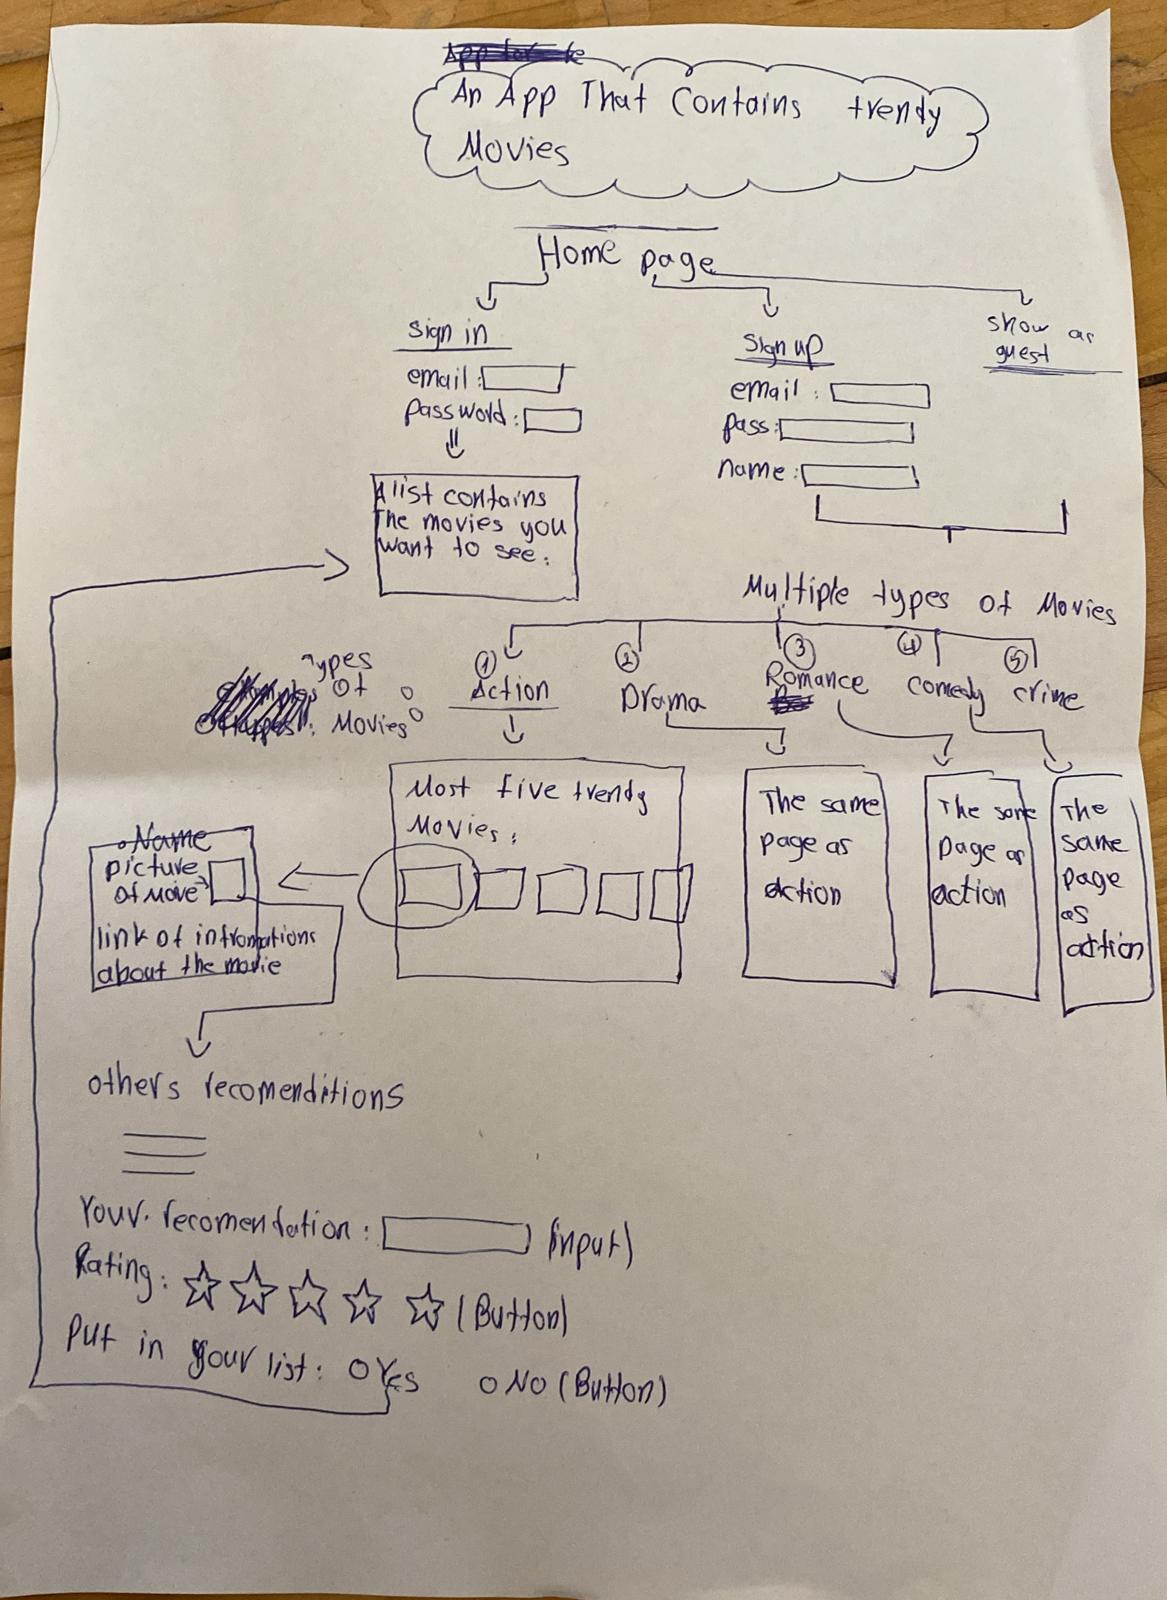 An App That Contains trendy
Movies
Home page
Sign in
email :
Password :
Sign up
email :
pass :
name :
show as
guest
A list contains
The movies you
want to see :
Multiple types of Movies
Types
of
Movies
① Action
② Drama
③ Romance
④ comedy
⑤ crime
Most five trendy
Movies :
The same
page as
action
The same
page as
action
The
same
page
as
action
Name
picture
of Movie
link of intromations
about the movie
others recomenditions
Your recomendation : (input)
Rating : (Button)
Put in your list : O Yes O No (Button)